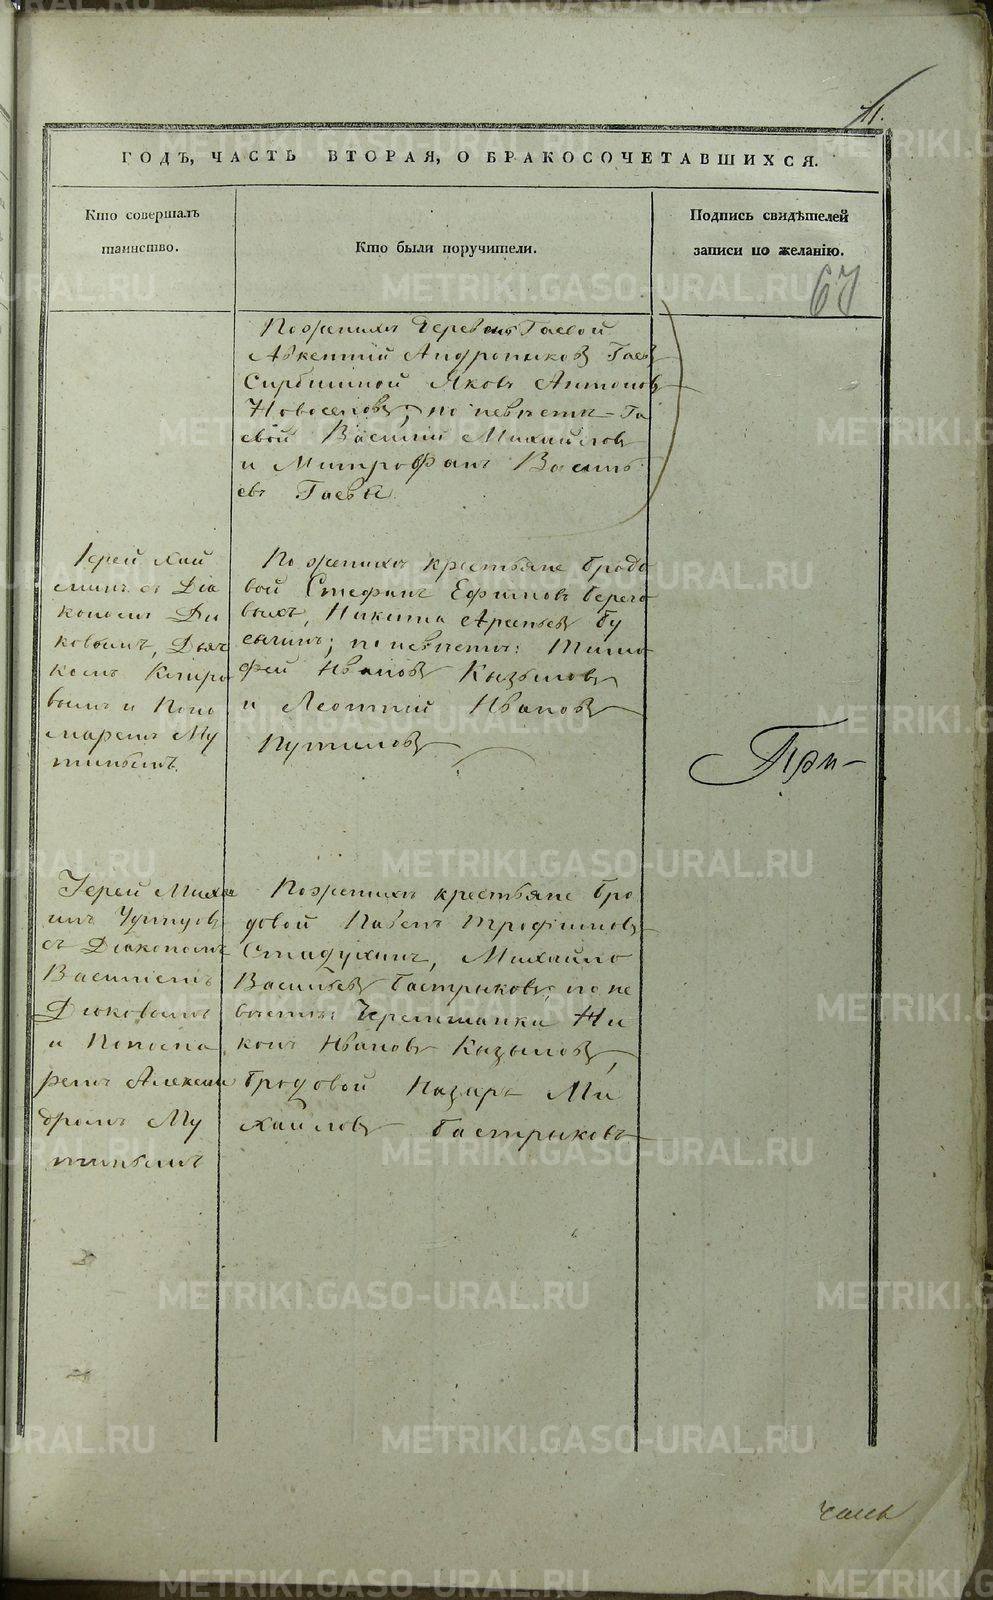 71.
ГОДЪ, ЧАСТЬ ВТОРАЯ, О БРАКОСОЧЕТАВШИХСЯ.
Кто совершалъ
таинство.
Кто были поручители.
Подпись свидѣтелей
записи по желанію.
67
По женихѣ деревень Гаевой
Авкентій Андрониковъ Гаевъ
Яковъ Антоновъ
Новоселовъ; по невѣстѣ Га
евой Василій Михайловъ
и Митрофанъ Василь
евъ Гаевы
Іерей
съ Діа
кономъ Дю
ковымъ, Дьяч
комъ
вымъ и Поно
маремъ Му
тинымъ.
По женихѣ крестьяне Бродо
вой Стефанъ Ефимовъ Берего
выхъ, Никита Арсеньевъ Бу
сыгинъ; по невѣстѣ: Тимо
фей Ивановъ Кызыловъ
и Леонтий Ивановъ
Путиловъ
При-
Іерей Миха
илъ
съ Діакономъ
Василіемъ
Дюковымъ
и Понома
ремъ Алексан
дромъ Му
тинымъ
По женихѣ крестьяне Бро
довой Павелъ Трофимовъ
Стадухинъ, Михайло
Васильевъ Бастрыковъ; по не
вѣстѣ: Черемшанки Ни
конъ Ивановъ Кызыловъ,
Бродовой Назаръ Ми
хайловъ Бастрыковъ
часть
METRIKI.GASO-URAL.RU